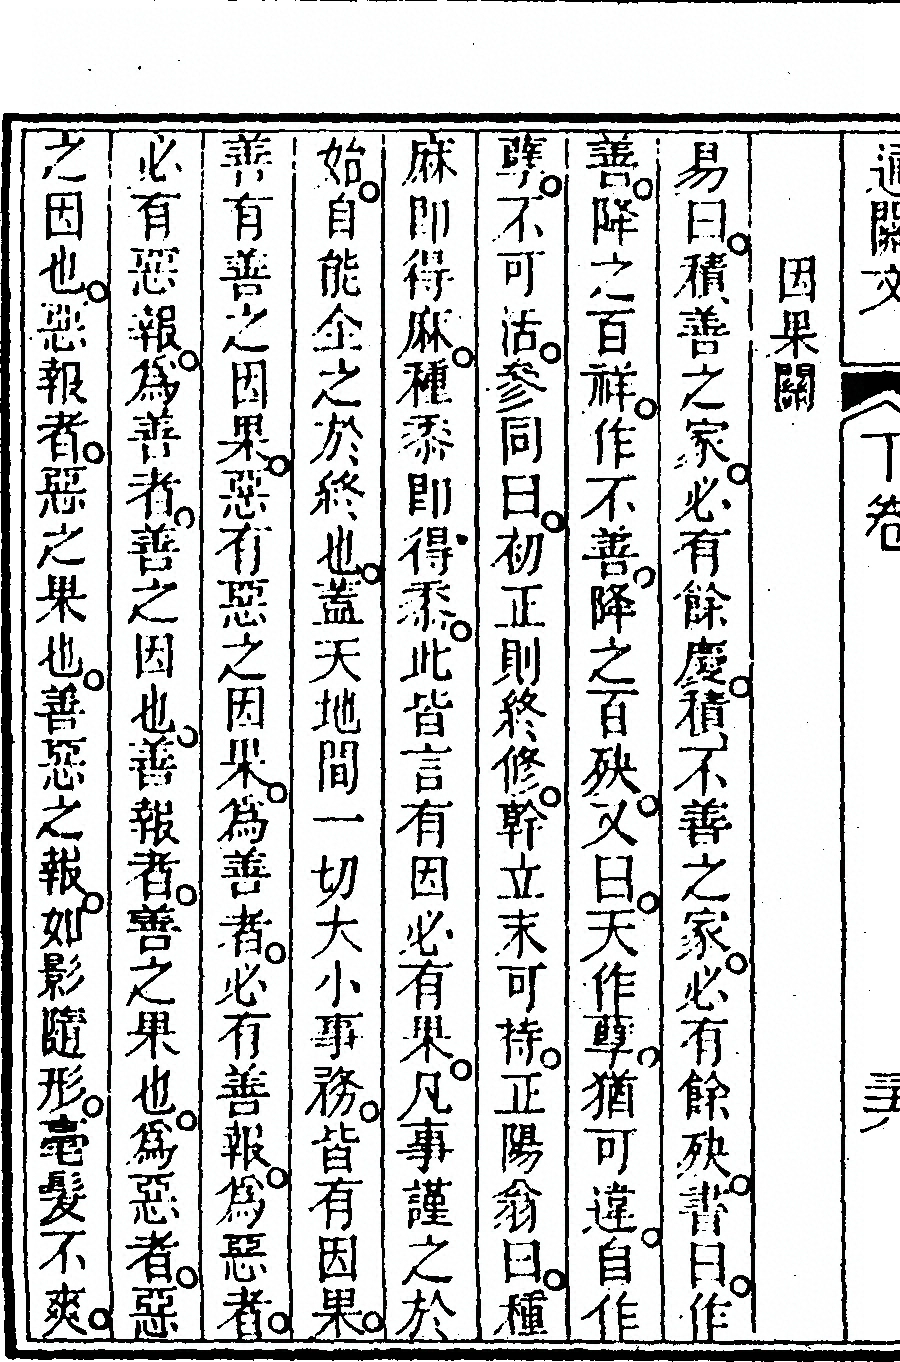 通關文
下卷
因果關
易曰積善之家必有餘慶積不善之家必有餘殃書曰作
善降之百祥作不善降之百殃又曰天作孽猶可違自作
孽不可活參同曰初正則終修幹立末可持正陽翁曰種
麻即得麻種黍即得黍此皆言有因必有果凡事謹之於
始自能全之於終也蓋天地間一切大小事務皆有因果
善有善之因果惡有惡之因果為善者必有善報為惡者
必有惡報為善者善之因也善報者善之果也為惡者惡
之因也惡報者惡之果也善惡之報如影隨形毫髮不爽